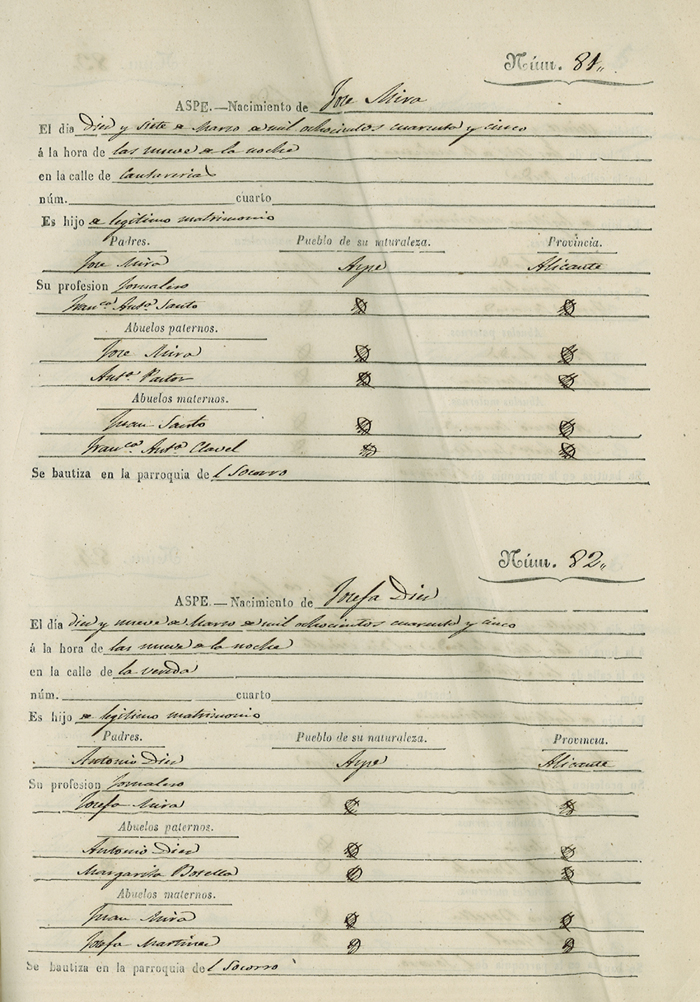 Núm. 81,,
ASPE.—Nacimiento de Jose Mira
El día Diez y siete de Marzo de mil ochocientos cuarenta y cinco
á la hora de las nueve de la noche
en la calle de
núm. cuarto
Es hijo de legitimo matrimonio
Padres. Pueblo de su naturaleza. Provincia.
Jose Mira Aspe Alicante
Su profesion Jornalero
Fran.ca Ant.a Santo
Abuelos paternos.
Jose Mira
Ant.a Pastor
Abuelos maternos.
Juan Santo
Fran.ca Ant.a Clavel
Se bautiza en la parroquia de l Socorro
Núm. 82,,
ASPE.—Nacimiento de Josefa Diez
El día diez y nueve de Marzo de mil ochocientos cuarenta y cinco
á la hora de las nueve de la noche
en la calle de la vereda
núm. cuarto
Es hijo de legitimo matrimonio
Padres. Pueblo de su naturaleza. Provincia.
Antonio Diez Aspe Alicante
Su profesion Jornalero
Josefa Mira
Abuelos paternos.
Antonio Diez
Margarita Botella
Abuelos maternos.
Juan Mira
Josefa Martinez
Se bautiza en la parroquia de l Socorro